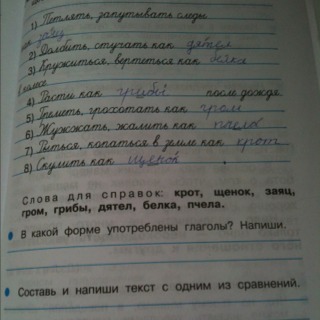 1) Петлять, запутывать следы
как заяц
2) Долбить, стучать как дятел
3) Кружиться, вертеться как белка
в колесе
4) Расти как грибы после дождя
5) Греметь, грохотать как гром
6) Жужжать, жалить как пчела
7) Рыться, копаться в земле как крот
8) Скулить как щенок
Слова для справок: крот, щенок, заяц,
гром, грибы, дятел, белка, пчела.
В какой форме употреблены глаголы? Напиши.
Составь и напиши текст с одним из сравнений.